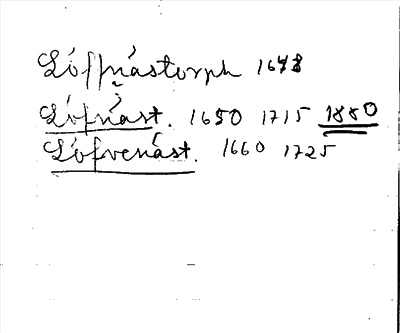 Löffnästorph 1643
Löfnäst. 1650 1715 1880
Löfvenäst. 1660 1725